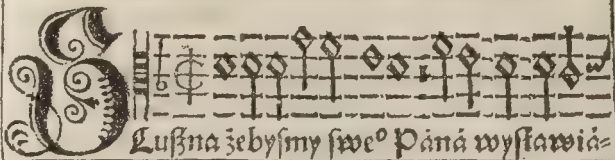 SLußna żebyſmy ſweº Páná wyſławiá-